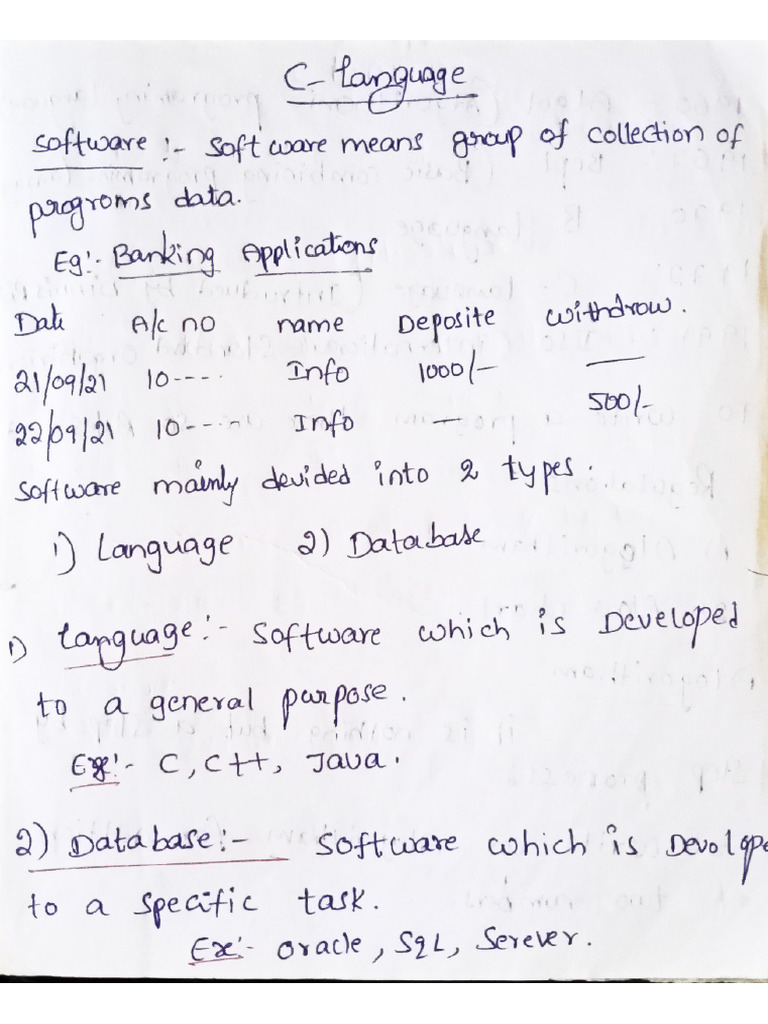 C- Language
Software :- Software means group of collection of
progroms data.
Eg:- Banking Applications
Date A/c no name Deposite withdrow.
21/09/21 10----- Info 1000/- —
22/09/21 10----- Info — 500/-
Software mainly devided into 2 types.
1) Language 2) Database
1) Language:- Software which is Developed
to a general purpose.
Ex:- C, C++, Java.
2) Database:- Software which is Devolope
to a specific task.
Ex:- oracle, SQL, Serever.